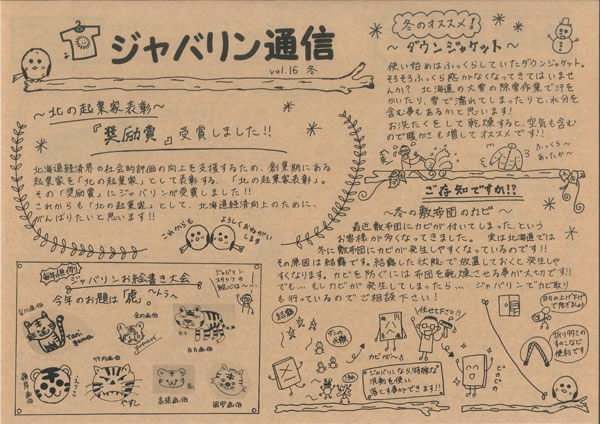 ジャバリン通信
vol.16 冬
～北の起業家表彰～
『奨励賞』受賞しました!!
北海道経済界の社会的評価の向上を支援するため、創業期にある
起業家を「北の起業家」として表彰する、「北の起業家表彰」。
その「奨励賞」にジャバリンが受賞しました!!
これからも「北の起業家」として、北海道経済向上のために、
がんばりたいと思います!!
これからも
よろしくおねがいします
冬のオススメ!
～ダウンジャケット～
使い始めはふっくらしていたダウンジャケット。
そろそろふっくら感がなくなってきてはいませ
んか？ 北海道の大雪の除雪作業で汗を
かいたり、雪で濡れてしまったりと、水分を
含む事もあるかと思います!
お洗たくをして乾燥すると、空気も含む
ので暖かさも増してオススメです!!
ふっくら～
あったか～
ご存知ですか!?
～冬の敷布団のカビ～
最近敷布団にカビが付いてしまった、という
お客様が多くなってきました。 実は北海道では
冬に敷布団にカビが発生しやすくなっているのです!!
その原因は結露です。結露した状態で放置しておくと発生しや
すくなります。カビを防ぐには布団を乾燥させる事が大切です!!
でも…もしカビが発生してしまったら… ジャバリンでカビ取り
も行っているのでご相談下さい!
結露
カビが～
任せて下さい!!
ジャバリンなら、特殊な
洗剤を使い
落とす事ができます!!
ピカピカ
日々の上げ下げ
で防ぎましょう
折りたたみ式の
すのこなど
便利です
毎年恒例
ジャバリンお絵書き大会
今年のお題は「虎」。
ジャバリン
スタッフの
白力画伯
竹内画伯
高張画伯
田中画伯
やすし